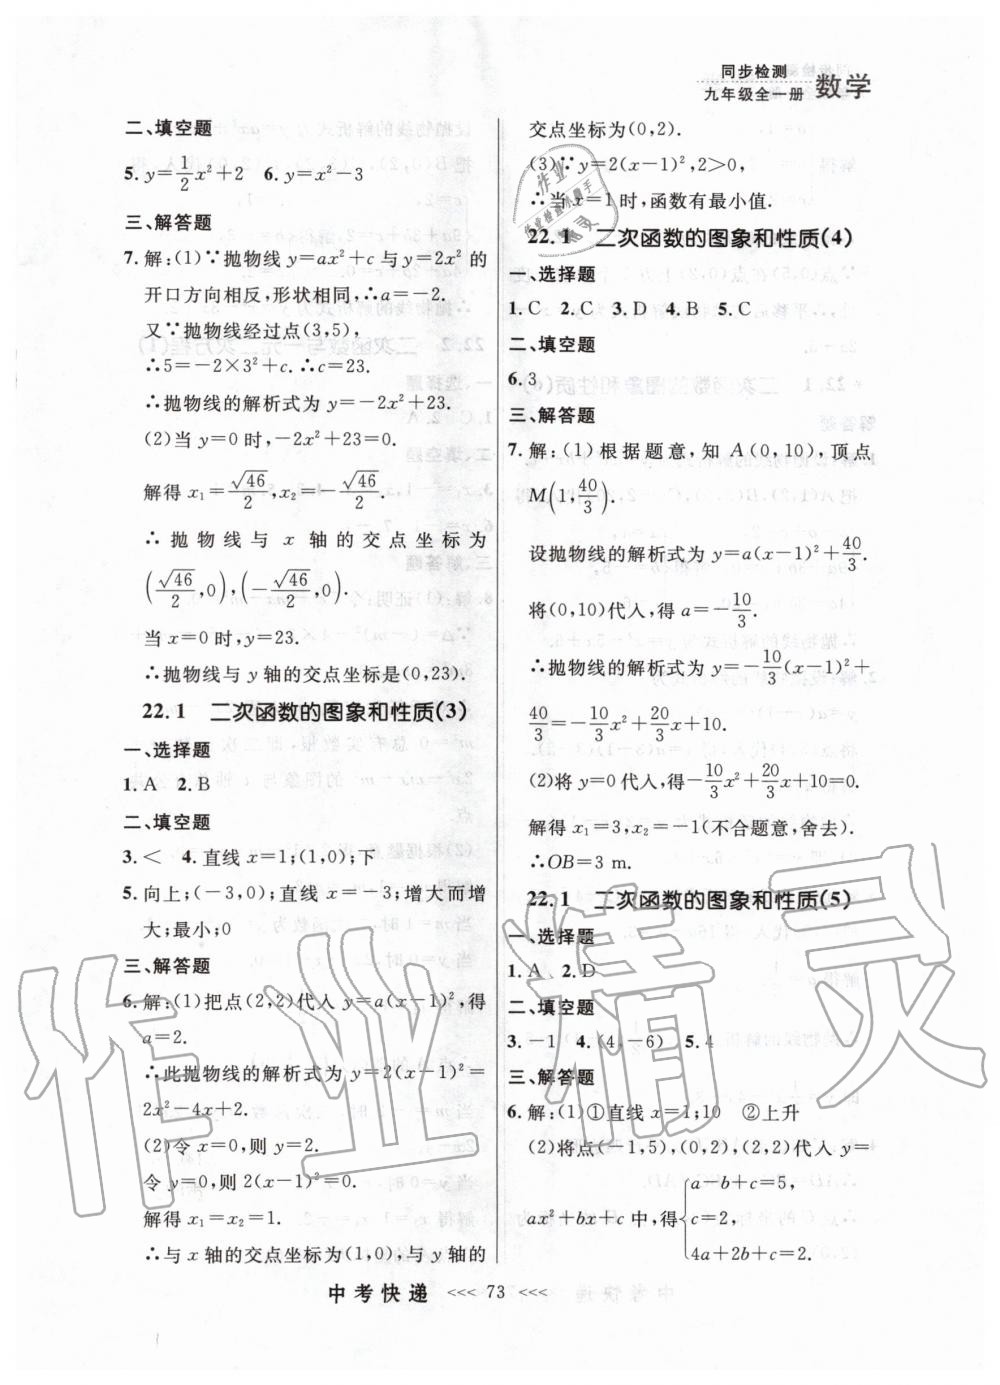 同步检测
九年级全一册 数学
二、填空题
5. y=1/2x²+2  6. y=x²-3
三、解答题
7. 解:(1)∵抛物线 y=ax²+c 与 y=2x² 的
开口方向相反,形状相同,∴a=-2.
又∵抛物线经过点(3,5),
∴5=-2×3²+c. ∴c=23.
∴抛物线的解析式为 y=-2x²+23.
(2)当 y=0 时,-2x²+23=0.
解得 x₁=√46/2,x₂=-√46/2.
∴ 抛物线与 x 轴的交点坐标为
(√46/2,0),(-√46/2,0).
当 x=0 时,y=23.
∴抛物线与 y 轴的交点坐标是(0,23).
22.1 二次函数的图象和性质(3)
一、选择题
1. A  2. B
二、填空题
3. <  4. 直线 x=1;(1,0);下
5. 向上;(-3,0);直线 x=-3;增大而增
大;最小;0
三、解答题
6. 解:(1)把点(2,2)代入 y=a(x-1)²,得
a=2.
∴此抛物线的解析式为 y=2(x-1)²=
2x²-4x+2.
(2)令 x=0,则 y=2.
令 y=0,则 2(x-1)²=0.
解得 x₁=x₂=1.
∴与 x 轴的交点坐标为(1,0),与 y 轴的
交点坐标为(0,2).
(3)∵y=2(x-1)²,2>0,
∴当 x=1时,函数有最小值.
22.1 二次函数的图象和性质(4)
一、选择题
1. C  2. C  3. D  4. B  5. C
二、填空题
6. 3
三、解答题
7. 解:(1)根据题意,知 A(0,10),顶点
M(1,40/3).
设抛物线的解析式为 y=a(x-1)²+40/3.
将(0,10)代入,得 a=-10/3.
∴抛物线的解析式为 y=-10/3(x-1)²+
40/3=-10/3x²+20/3x+10.
(2)将 y=0代入,得-10/3x²+20/3x+10=0.
解得 x₁=3,x₂=-1(不合题意,舍去).
∴OB=3 m.
22.1 二次函数的图象和性质(5)
一、选择题
1. A  2. D
二、填空题
3. -1  4. (4,-6)  5. 4
三、解答题
6. 解:(1)①直线 x=1;10 ②上升
(2)将点(-1,5),(0,2),(2,2)代入 y=
ax²+bx+c 中,得{a-b+c=5,
c=2,
4a+2b+c=2.
中考快递 <<< 73 <<<
作业精灵